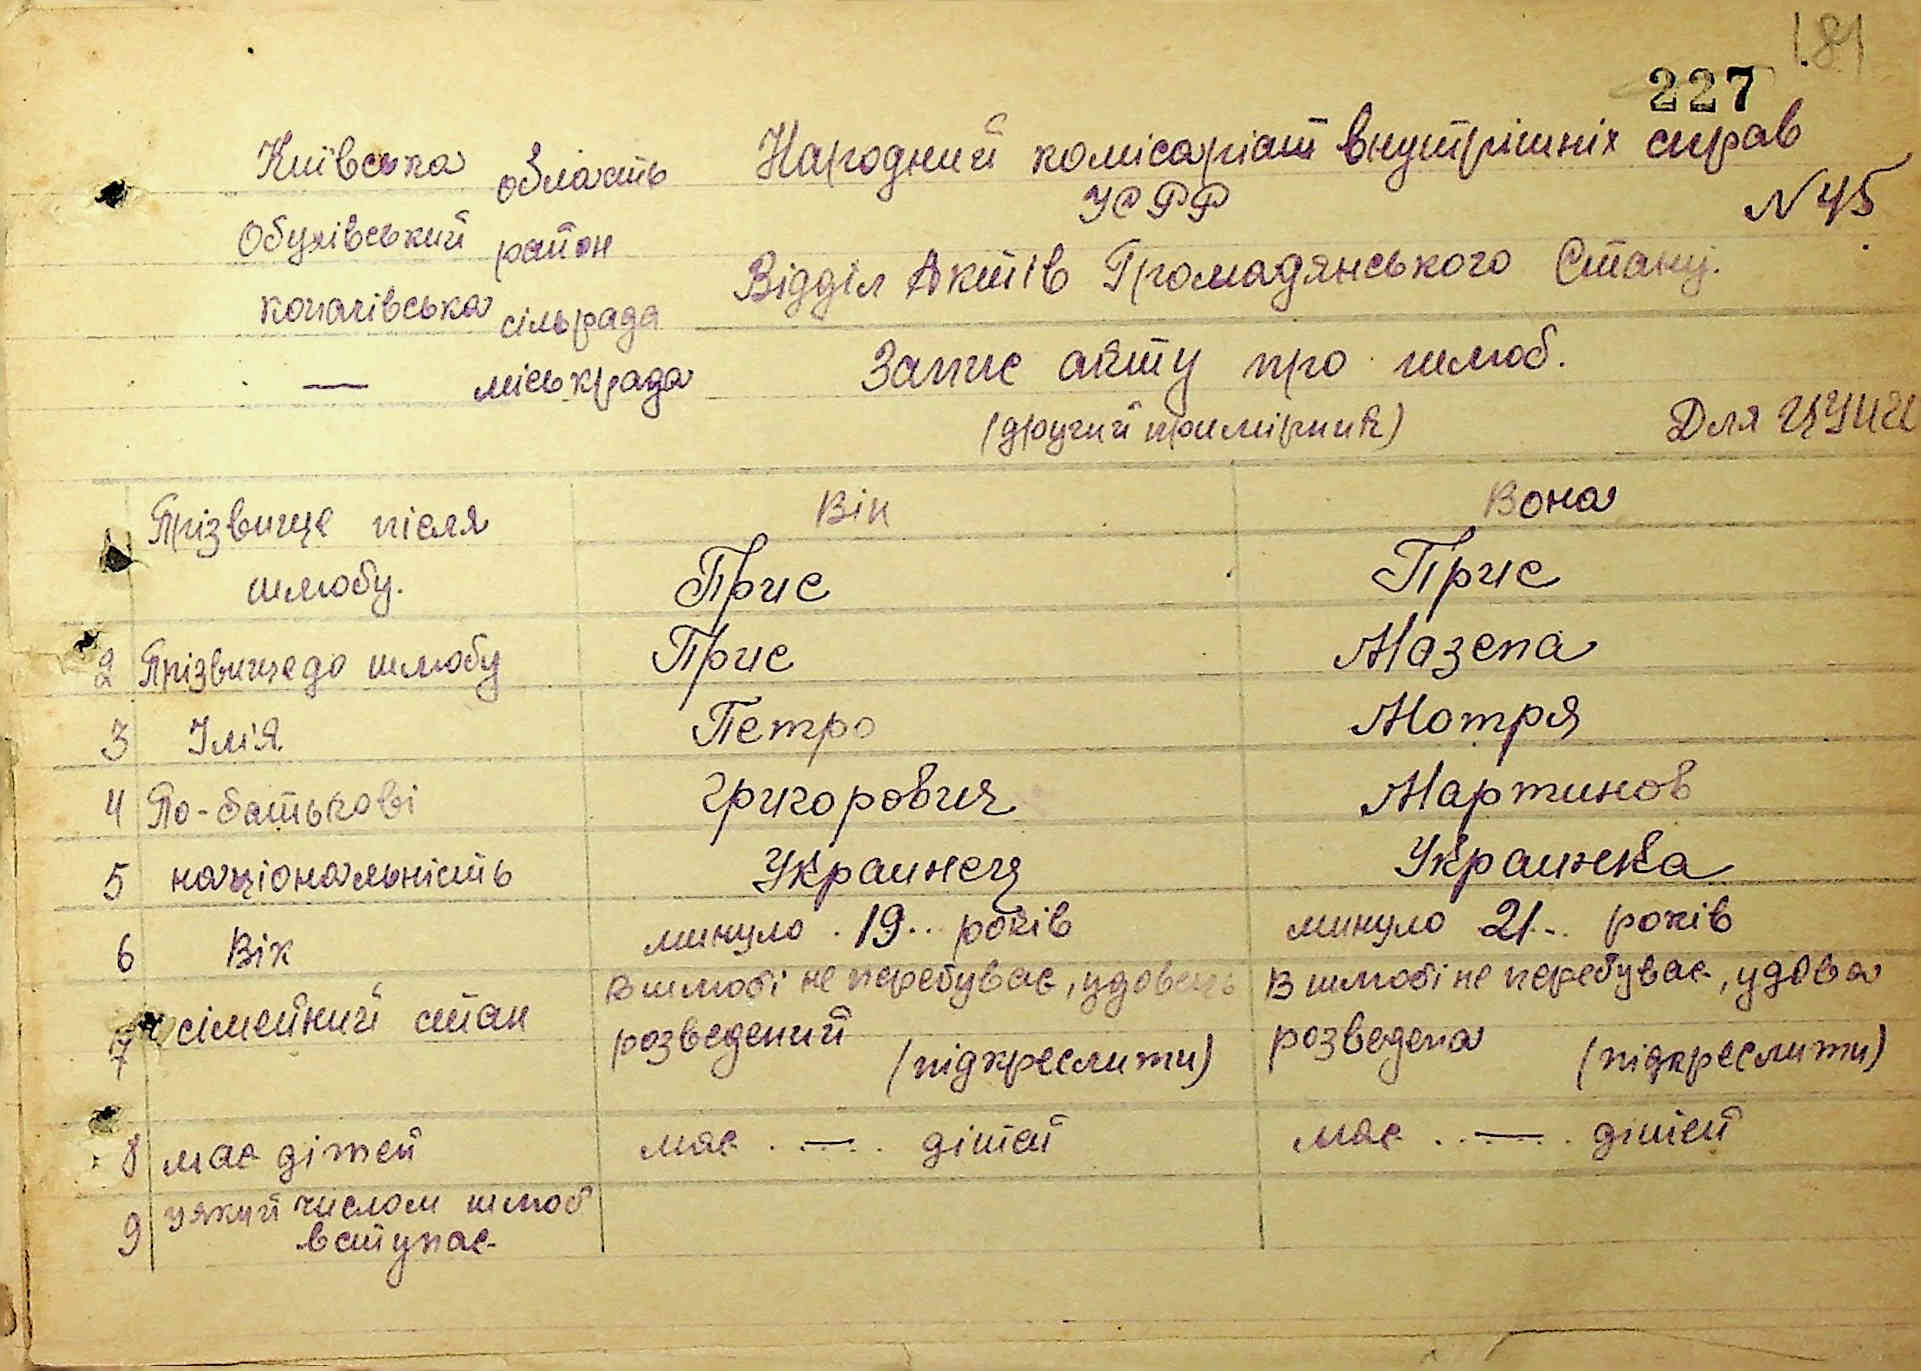 181
227
Київська область
Народний комісаріат внутрішніх справ
УСРР
N 45
Обухівський район
Відділ Актів Громадянського Стану.
копачівська сільрада
— міськрада
Запис акту про шлюб.
(другий примірник)
Для
Прізвище після
шлюбу.
Він
Вона
Прис
Прис
2 Прізвище до шлюбу
Прис
Мазепа
3 Імія
Петро
Мотря
4 По-батькові
Григорович
Мартинов
5 національність
Украинец
Украинка
6 Вік
минуло . 19 .. років
минуло 21 .. років
7 сімейний стан
В шлюбі не перебуває, удовець
розведений
(підкреслити)
В шлюбі не перебуває, удова
розведена
(підкреслити)
8 має дітей
має . — . дітей
має . — . дітей
9 у який числом шлюб
вступає